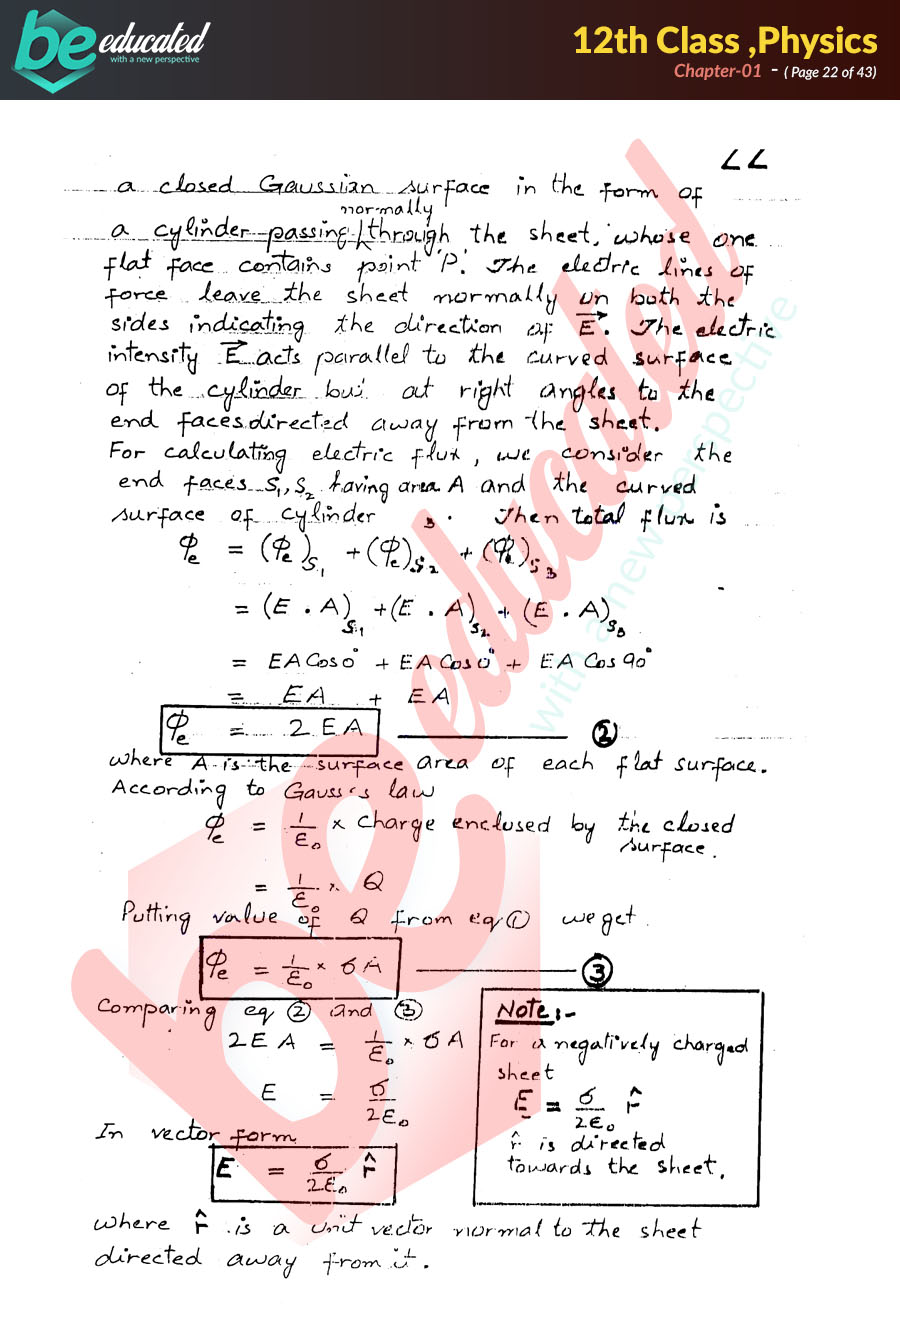 be educated
with a new perspective
12th Class ,Physics
Chapter-01 - ( Page 22 of 43)
22
a closed Gaussian surface in the form of
normally
a cylinder passing through the sheet, whose one
flat face contains point 'P'. The electric lines of
force leave the sheet normally on both the
sides indicating the direction of E⃗. The electric
intensity E⃗ acts parallel to the curved surface
of the cylinder but at right angles to the
end faces directed away from the sheet.
For calculating electric flux, we consider the
end faces S₁, S₂ having area A and the curved
surface of cylinder ₃. Then total flux is
ϕe = (ϕe)S₁ + (ϕe)S₂ + (ϕe)S₃
= (E . A)S₁ + (E . A)S₂ + (E . A)S₃
= EA Cos 0° + EA Cos 0° + EA Cos 90°
= EA + EA
ϕe = 2EA ②
where A is the surface area of each flat surface.
According to Gauss's law
ϕe = 1/ε₀ × Charge enclosed by the closed
surface.
= 1/ε₀ × Q
Putting value of Q from eq ① we get.
ϕe = 1/ε₀ × σA ③
Comparing eq ② and ③
2EA = 1/ε₀ × σA
E = σ/2ε₀
In vector form
E = σ/2ε₀ r̂
Note:-
For a negatively charged
sheet
E = σ/2ε₀ r̂
r̂ is directed
towards the sheet.
where r̂ is a unit vector normal to the sheet
directed away from it.
be educated
with a new perspective